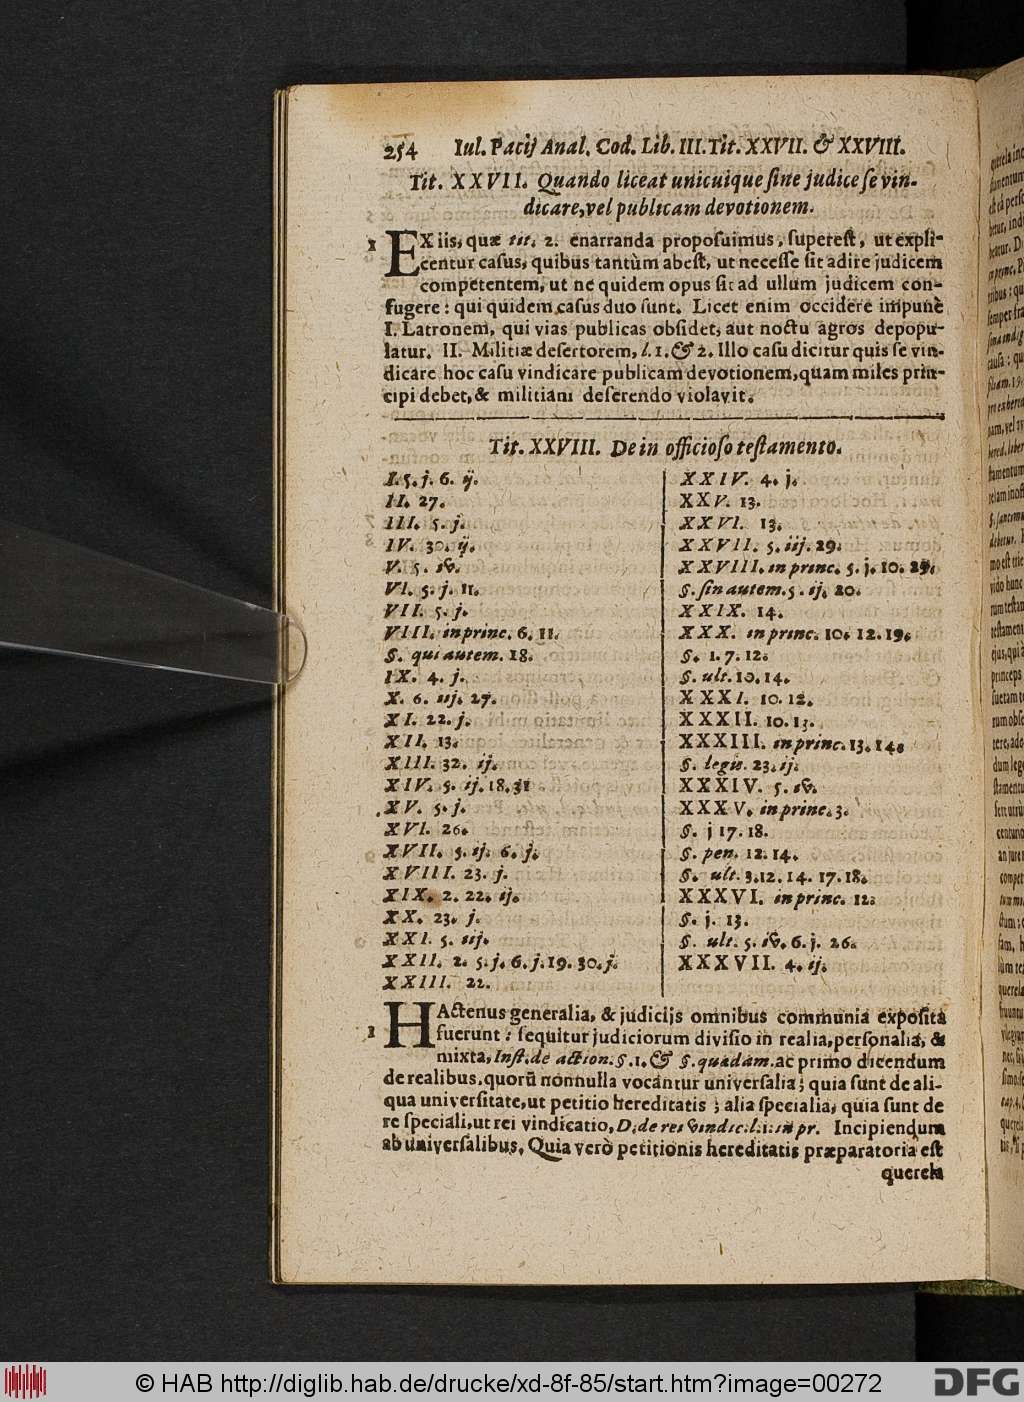 254 Iul. Pacij Anal. Cod. Lib. III. Tit. XXVII. & XXVIII.
Tit. XXVII. Quando liceat unicuique sine judice se vin-
dicare, vel publicam devotionem.
1 EX iis, quæ tit. 2. enarranda proposuimus, superest, ut expli-
centur casus, quibus tantùm abest, ut necesse sit adire judicem
competentem, ut ne quidem opus sit ad ullum judicem con-
fugere: qui quidem casus duo sunt. Licet enim occidere impunè
I. Latronem, qui vias publicas obsidet, aut noctu agros depopu-
latur. II. Militiæ desertorem, l. 1. & 2. Illo casu dicitur quis se vin-
dicare hoc casu vindicare publicam devotionem, quam miles prin-
cipi debet, & militiam deserendo violavit.
Tit. XXVIII. De in officioso testamento.
I. 5. j. 6. ij.
II. 27.
III. 5. j.
IV. 30. ij.
V. 5. iv.
VI. 5. j. 11.
VII. 5. j.
VIII. in princ. 6. 11.
§. qui autem. 18.
IX. 4. j.
X. 6. iij. 27.
XI. 22. j.
XII. 13.
XIII. 32. ij.
XIV. 5. ij. 18. 31
XV. 5. j.
XVI. 26.
XVII. 5. ij. 6. j.
XVIII. 23. j.
XIX. 2. 22. ij.
XX. 23. j.
XXI. 5. iij.
XXII. 2. 5. j. 6. j. 19. 30. j.
XXIII. 22.
XXIV. 4. j.
XXV. 13.
XXVI. 13.
XXVII. 5. iij. 29.
XXVIII. in princ. 5. j. 10. 29.
§. sin autem. 5. ij. 20.
XXIX. 14.
XXX. in princ. 10. 12. 19.
§. 1. 7. 12.
§. ult. 10. 14.
XXXI. 10. 12.
XXXII. 10. 13.
XXXIII. in princ. 13. 14.
§. legis. 23. ij.
XXXIV. 5. iv.
XXXV. in princ. 3.
§. j 17. 18.
§. pen. 12. 14.
§. ult. 3. 12. 14. 17. 18.
XXXVI. in princ. 12.
§. j. 13.
§. ult. 5. iv. 6. j. 26.
XXXVII. 4. ij.
1 HActenus generalia, & judiciis omnibus communia exposita
fuerunt: sequitur judiciorum divisio in realia, personalia, &
mixta, Inst. de action. §. 1. & §. quædam. ac primo dicendum
de realibus. quorū nonnulla vocantur universalia; quia sunt de ali-
qua universitate, ut petitio hereditatis; alia specialia, quia sunt de
re speciali, ut rei vindicatio, D. de rei vindic. l. 1. in pr. Incipiendum
ab universalibus. Quia verò petitionis hereditatis præparatoria est
querela
© HAB http://diglib.hab.de/drucke/xd-8f-85/start.htm?image=00272
DFG